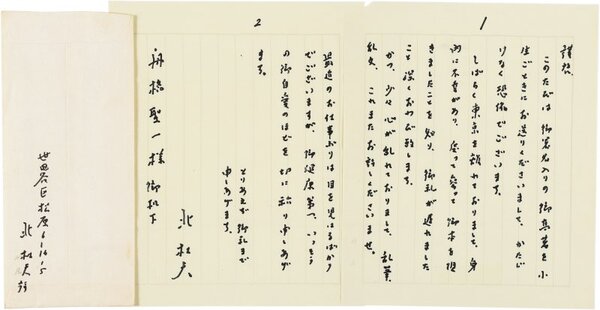 1
謹啓
このたびは 御署名入りの御高著を小
生ごときにお送りくださいまして、かたじ
けなく恐縮でございます。
しばらく東京を離れておりまして、身
内に不幸があり、
きましたことを知り、御礼が遅れました
こと深くおわび致します。
かつ、少々心が乱れておりまして、乱筆、
乱文、これまたお許しくださいませ。
2
最近のお仕事ぶりは目を見はるばかり
でございますが、御健康第一、いっそう
の御自愛のほどを切に祈り申しあげ
ます。
とりあえず御礼まで
申しあげます。
北杜夫
舟橋聖一様 御机下
世田谷区松原6-16-5
北 杜夫